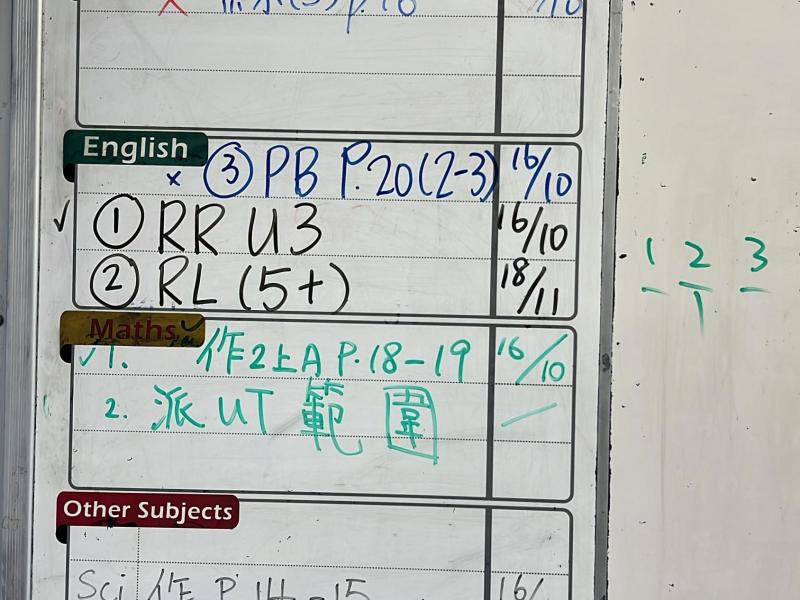 P.16 /10
English
x ③ PB P.20(2-3) 16/10
✓ ① RR U3 16/10
② RL (5+) 18/11
Maths
✓1. 作2上A P.18-19 16/10
2. 派UT 範圍 /
Other Subjects
Sci 作 P.14-15 16/
1 2 3
1